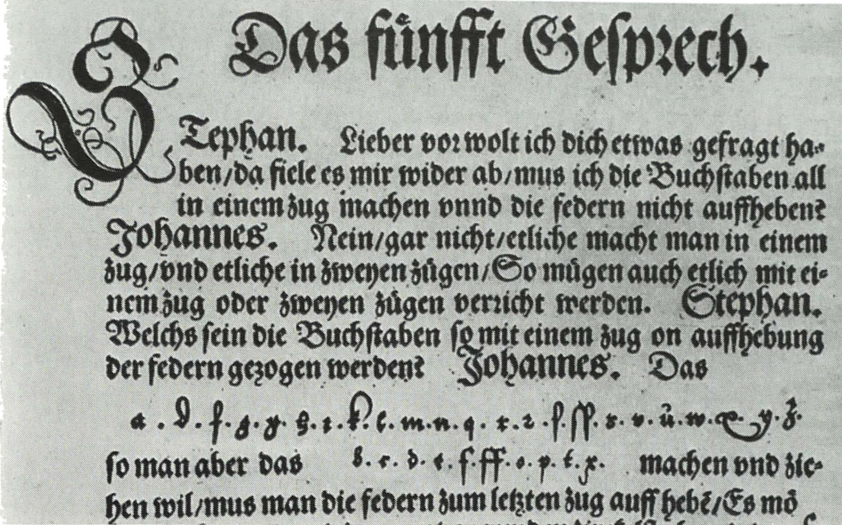 Das fůnfft Gesprech.
STephan. Lieber vor wolt ich dich etwas gefragt ha-
ben/da fiele es mir wider ab/mus ich die Buchstaben all
in einem zug machen vnnd die federn nicht auffheben?
Johannes. Nein/gar nicht/etliche macht man in einem
zug/vnd etliche in zweyen zůgen/So můgen auch etlich mit ei-
nem zug oder zweyen zůgen verricht werden. Stephan.
Welchs sein die Buchstaben so mit einem zug on auffhebung
der federn gezogen werden? Johannes. Das
so man aber das machen vnd zie-
hen wil/mus man die federn zum letzten zug auff hebē/Es mö